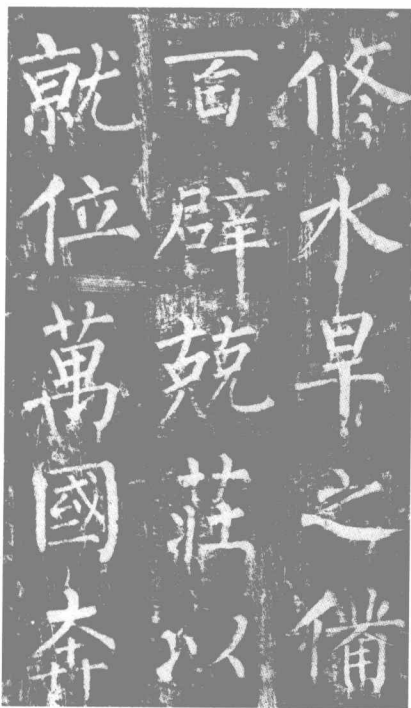 修水旱之備
百辟兢莊以
就位萬國奔